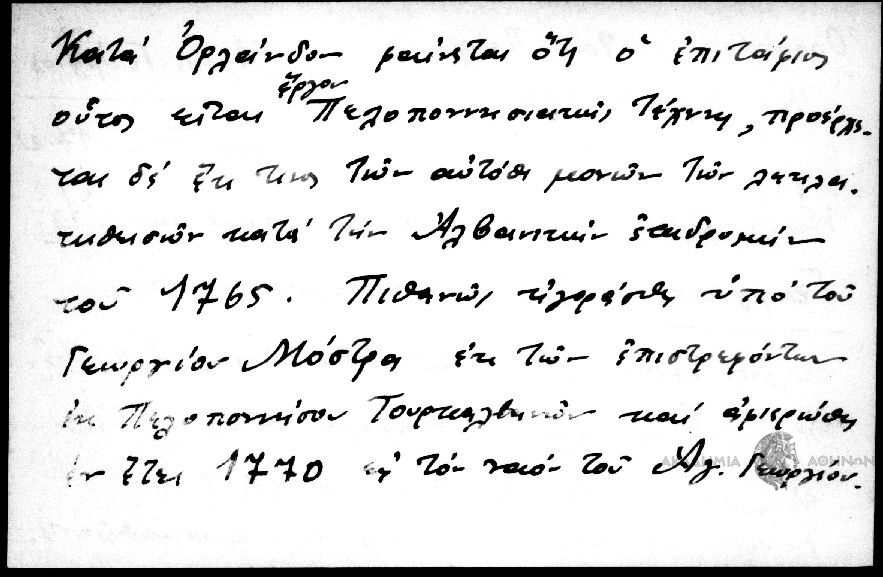 Κατά Ὀρλάνδον φαίνεται ὅτι ὁ ἐπιτάφιος
οὗτος εἶναι ἔργον Πελοποννησιακῆς τέχνης, προέρχε-
ται δέ ἔκ τινος τῶν αὐτόθι μονῶν τῶν λεηλα-
τηθεισῶν κατά τήν Ἀλβανικήν ἐπιδρομήν
τοῦ 1765. Πιθανῶς ἠγοράσθη ὑπό τοῦ
Γεωργίου Μόστρα ἐκ τῶν ἐπιστρεφόντων
ἐκ Πελοποννήσου Τουρκαλβανῶν καί ἀφιερώθη
ἐν ἔτει 1770 εἰς τόν ναόν τοῦ Ἁγ. Γεωργίου.
ΑΚΑΔΗΜΙΑ ΑΘΗΝΩΝ